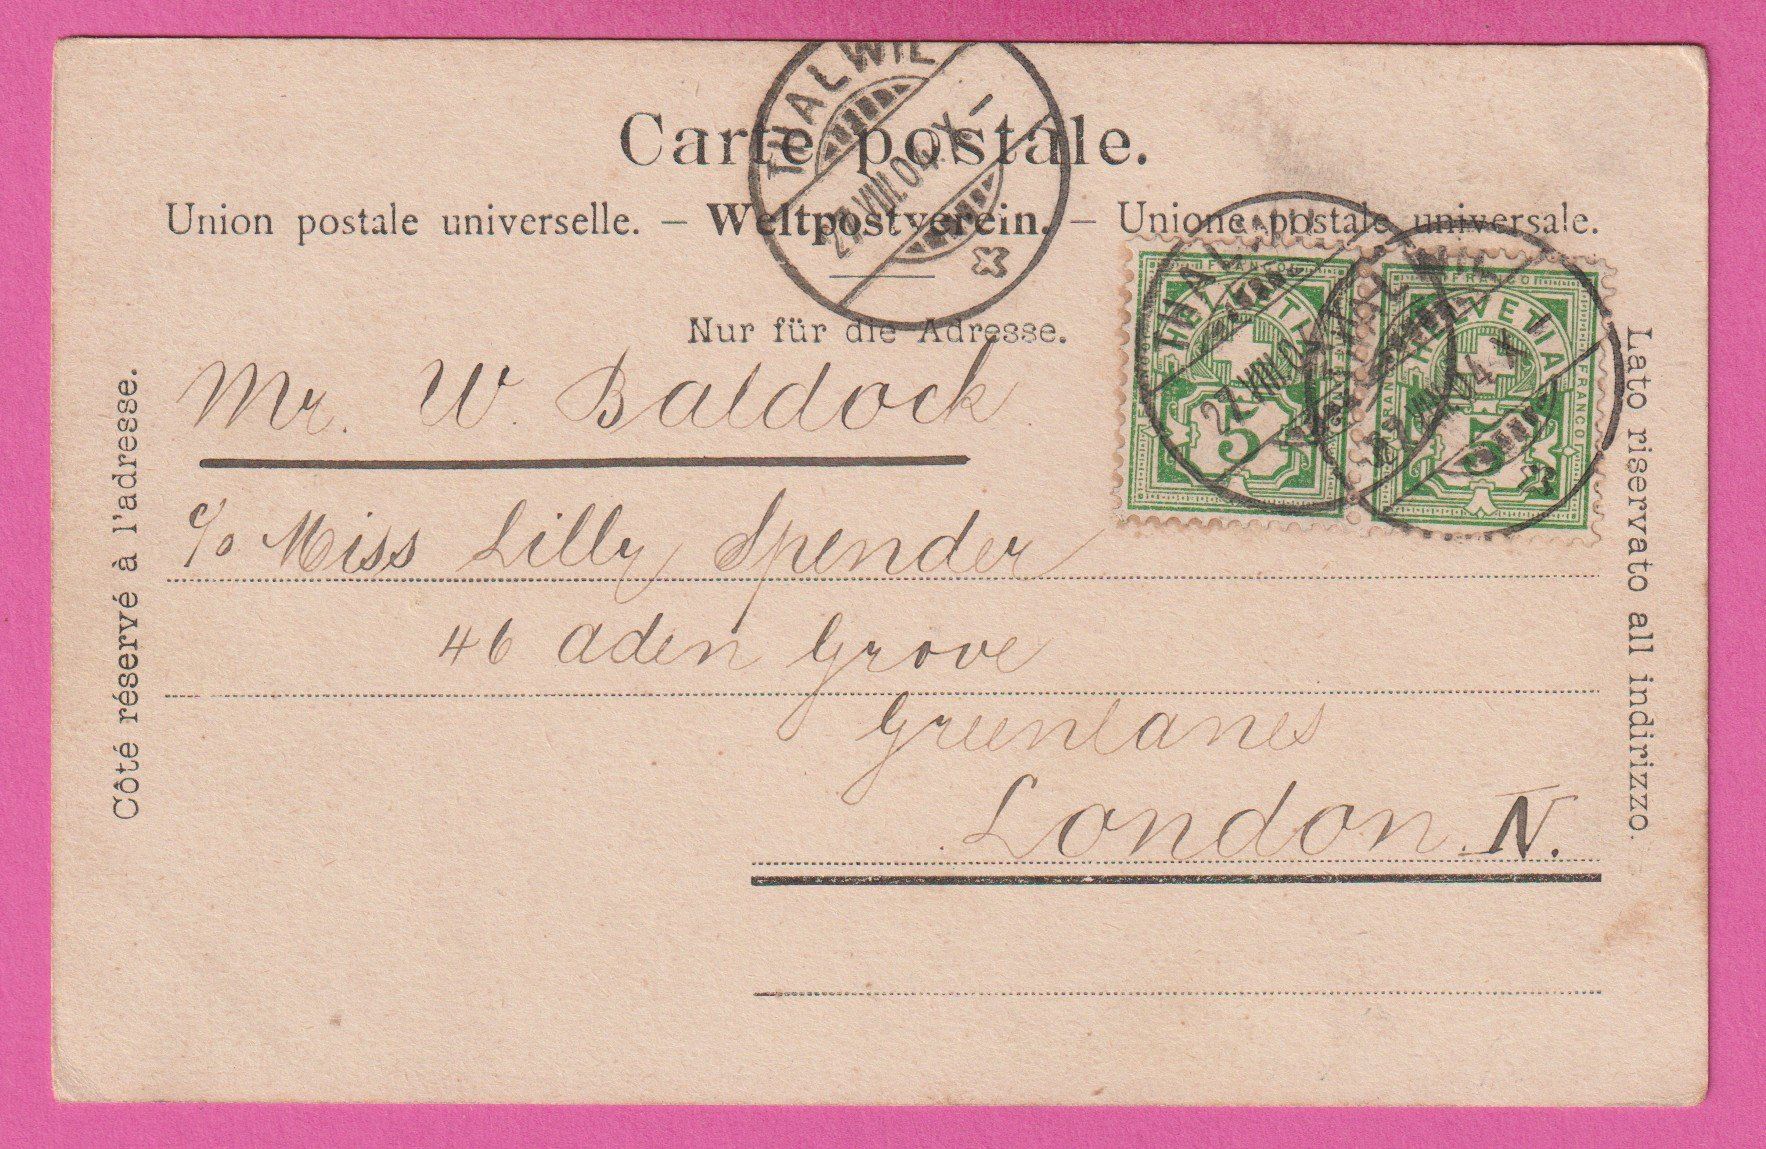 THALWIL
27.VIII.04.X.–
Carte postale.
Union postale universelle. – Weltpostverein. – Unione postale universale.
Nur für die Adresse.
THALWIL
27.VIII.04
FRANCO
HELVETIA
5
THALWIL
27.VIII.04.X
FRANCO
HELVETIA
FRANCO
5
Côté réservé à l'adresse.
Lato riservato all indirizzo.
Mr. W Baldock
c/o Miss Lilly Spender
46 Aden Grove
Greenlanes
London. N.